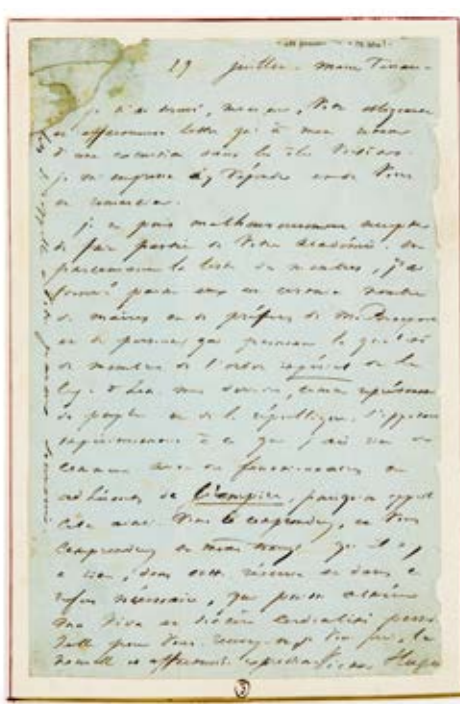 29 juillet. Marine Terrace
je trouve, monsieur, votre obligeante
et affectueuse lettre qui à mon retour
d'une excursion dans les îles voisines.
je m'empresse d'y répondre et de vous
en remercier.
je ne puis malheureusement accepter
de faire partie de votre académie. en
parcourant la liste des membres, j'ai
trouvé parmi eux un certain nombre
de maires et de préfets de M. Bonaparte
et de personnes qui prennent la qualité
de membre de l'ordre impérial de la
lég. d'hon. mon devoir, comme représentant
du peuple et de la république, s'oppose
impérieusement à ce que j'aie rien de
commun avec des fonctionnaires ou
adhérents de l'empire, puisqu'on appelle
cela ainsi. Vous le comprendrez, et vous
comprendrez en même temps qu'il n'y
a rien, dans cette réserve et dans ce
refus nécessaire, qui puisse altérer
ma vive et sincère cordialité person
nelle pour vous. recevez-en je vous prie, la
nouvelle et affectueuse expression Victor Hugo
3